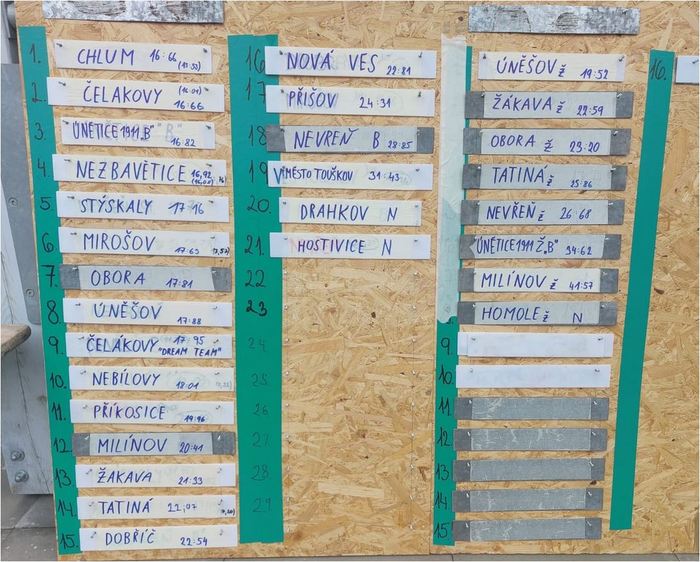 1. CHLUM 16:66
2. ČELAKOVY 16:66
3. ÚNĚTICE 1911 "B" 16:82
4. NEZBAVĚTICE 16,92
5. STÝSKALY 17:16
6. MIROŠOV 17:63
7. OBORA 17:81
8. ÚNĚŠOV 17:88
9. ČELÁKOVY 17:95 "DREAM TEAM"
10. NEBÍLOVY 18:01
11. PŘÍKOSICE 19:96
12. MILÍNOV 20:41
13. ŽÁKAVA 21:33
14. TATINÁ 22:07
15. DOBŘÍČ 22:54
16. NOVÁ VES 22:81
17. PŘÍŠOV 24:31
18. NEVREŇ B 28:85
19. MĚSTO TOUŠKOV 31:43
20. DRAHKOV N
21. HOSTIVICE N
22
23
24
25
26
27
28
29
ÚNĚŠOV Ž 19:52
ŽÁKAVA Ž 22:59
OBORA Ž 23:20
TATINÁ Ž 25:86
NEVŘEŇ Ž 26:68
ÚNĚTICE 1911 Ž "B" 34:62
MILÍNOV Ž 41:57
HOMOLE Ž N
9.
10.
11
12
13
14
15.
16.